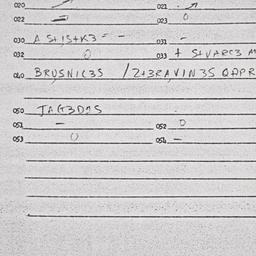 020 021
022 023 0
030 A S+1S+K3 = - 031 -
032 0 033 + S+VARC3
040 BRUSNIC3S /2+3RAVIN3S 0APR
050 JAG3D2S
051 - 052 0
053 0 054 -